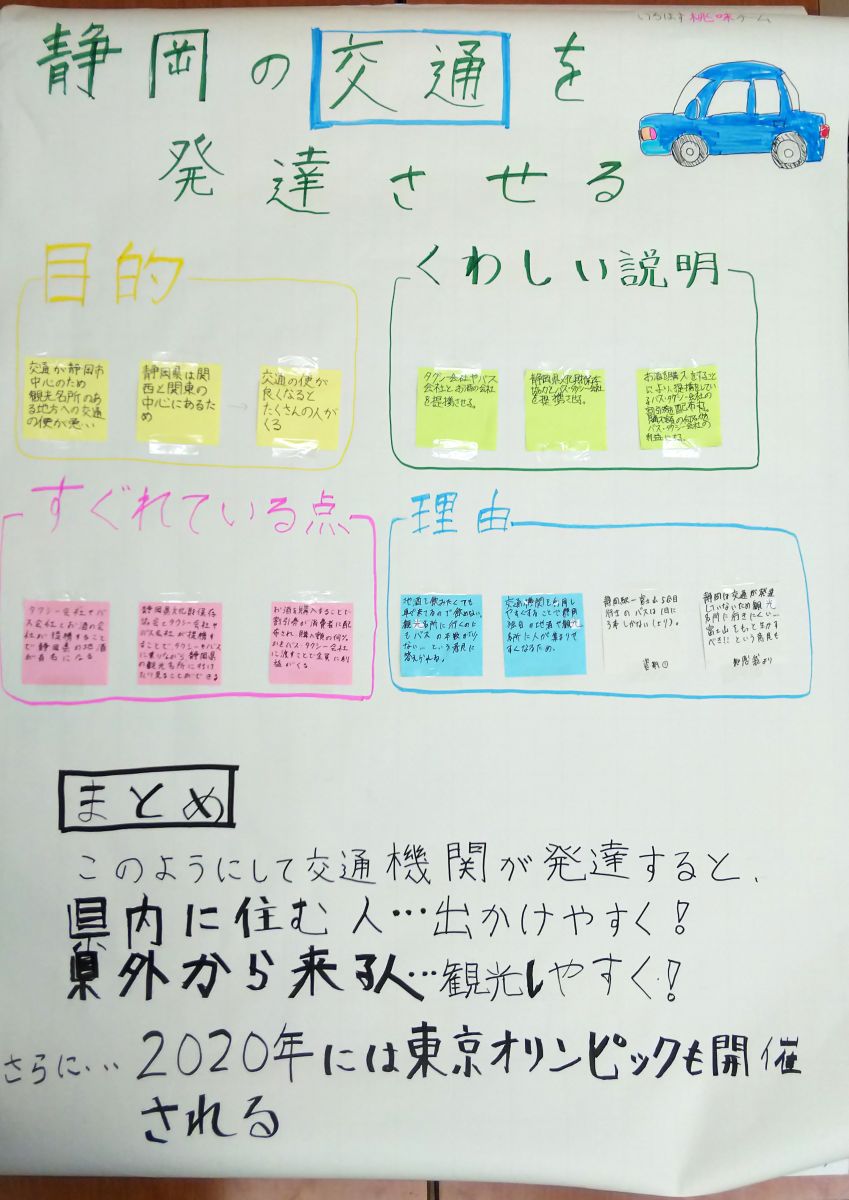 いろはす桃味チーム
静岡の交通を
発達させる
目的
交通が静岡市
中心のため
観光名所のあ
る地方への交通
の便が悪い
静岡県は関
西と関東の
中心にあるた
め
→
交通の便が
良くなると
たくさんの人が
くる
くわしい説明
タクシー会社やバス
会社と、お酒の会社
を提携させる。
静岡県文化財保存
協会とバス・タクシー会社
を提携させる。
お酒を購入をすること
により、提携をしている
バス・タクシー会社の
割引券を配布され、
購入額の何%か
バス・タクシー会社の
利益にする。
すぐれている点
タクシー会社やバ
ス会社とお酒の会
社が提携すること
で静岡県の地酒
が有名になる
静岡県文化財保存
協会とタクシー会社や
バス会社が提携
することで、タクシーやバス
に乗りながら静岡県
の観光名所に行け
たり見ることができる
お酒を購入することで
割引券が消費者に配
布され、購入額の何%
かをバス・タクシー会社
に渡すことで全員に利
益がくる
理由
地酒を飲みたくても
車で来るので飲めない。
観光名所に行くの
にもバスの本数が少
ない…という意見に
答えられる。
交通機関を利用し
やすくすることで静岡
独自の地酒や観光
名所に人が集まりや
すくなるため。
静岡駅→富士山5合目
行きのバスは1日に
3本しかない(より)。
資料①
静岡は交通が発達
していないため観光
名所に行きにくい…
富士山をもっと生かす
べき!!という意見も
より
まとめ
このようにして交通機関が発達すると、
県内に住む人…出かけやすく!
県外から来る人…観光しやすく!
さらに…2020年には東京オリンピックも開催
される